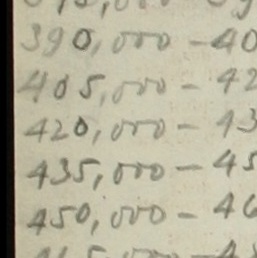 390,000 - 40
405,000 - 42
420,000 - 43
435,000 - 45
450,000 - 46